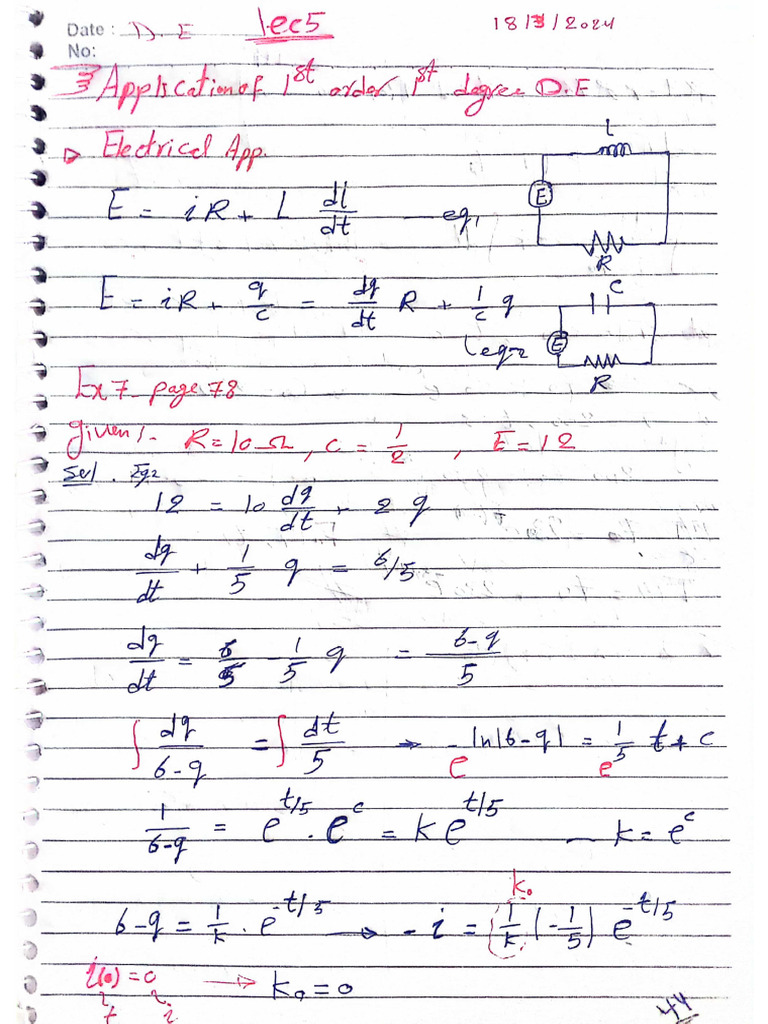 Date : D. E lec5 18/3/2024
No:
Application of 1st order, 1st degree D.E
Electrical App.
E = iR + L di/dt — eq1
L
E
R
E = iR + q/c = dq/dt R + 1/c q
eq2
C
E
R
Ex 7 - page 78
given:- R = 10 Ω, c = 1/2, E = 12
Sol. Eq2
12 = 10 dq/dt + 2 q
dq/dt + 1/5 q = 6/5
dq/dt = 6/5 - 1/5 q = 6-q/5
∫ dq/6-q = ∫ dt/5 → -ln|6-q| = 1/5 t + c
e e
1/6-q = e^t/5 . e^c = k e^t/5 — k = e^c
k₀
6-q = 1/k . e^-t/5 → -i = 1/k (-1/5) e^-t/5
i(0) = 0 → k₀ = 0
t i
44